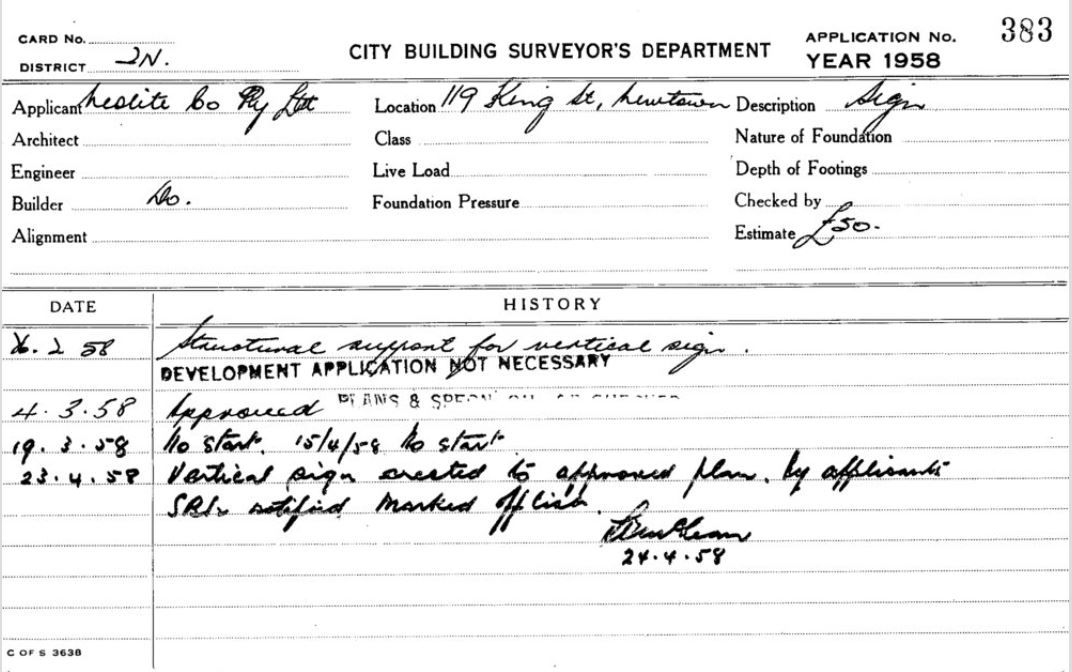 CARD No.
DISTRICT 2N.
CITY BUILDING SURVEYOR'S DEPARTMENT
APPLICATION No. 383
YEAR 1958
Applicant Neolite Co Pty Ltd Location 119 King St, Newtown Description Sign
Architect Class Nature of Foundation
Engineer Live Load Depth of Footings
Builder Do. Foundation Pressure Checked by
Alignment Estimate £50.
DATE HISTORY
26. 2 58 Structural support for vertical sign.
DEVELOPMENT APPLICATION NOT NECESSARY
4. 3. 58 Approved PLANS &
19. 3. 58 No start. 15/4/58 No start
23. 4. 58 Vertical sign erected to approved plan. by applicants
notified Marked off list.
24. 4. 58
C OF S 3638